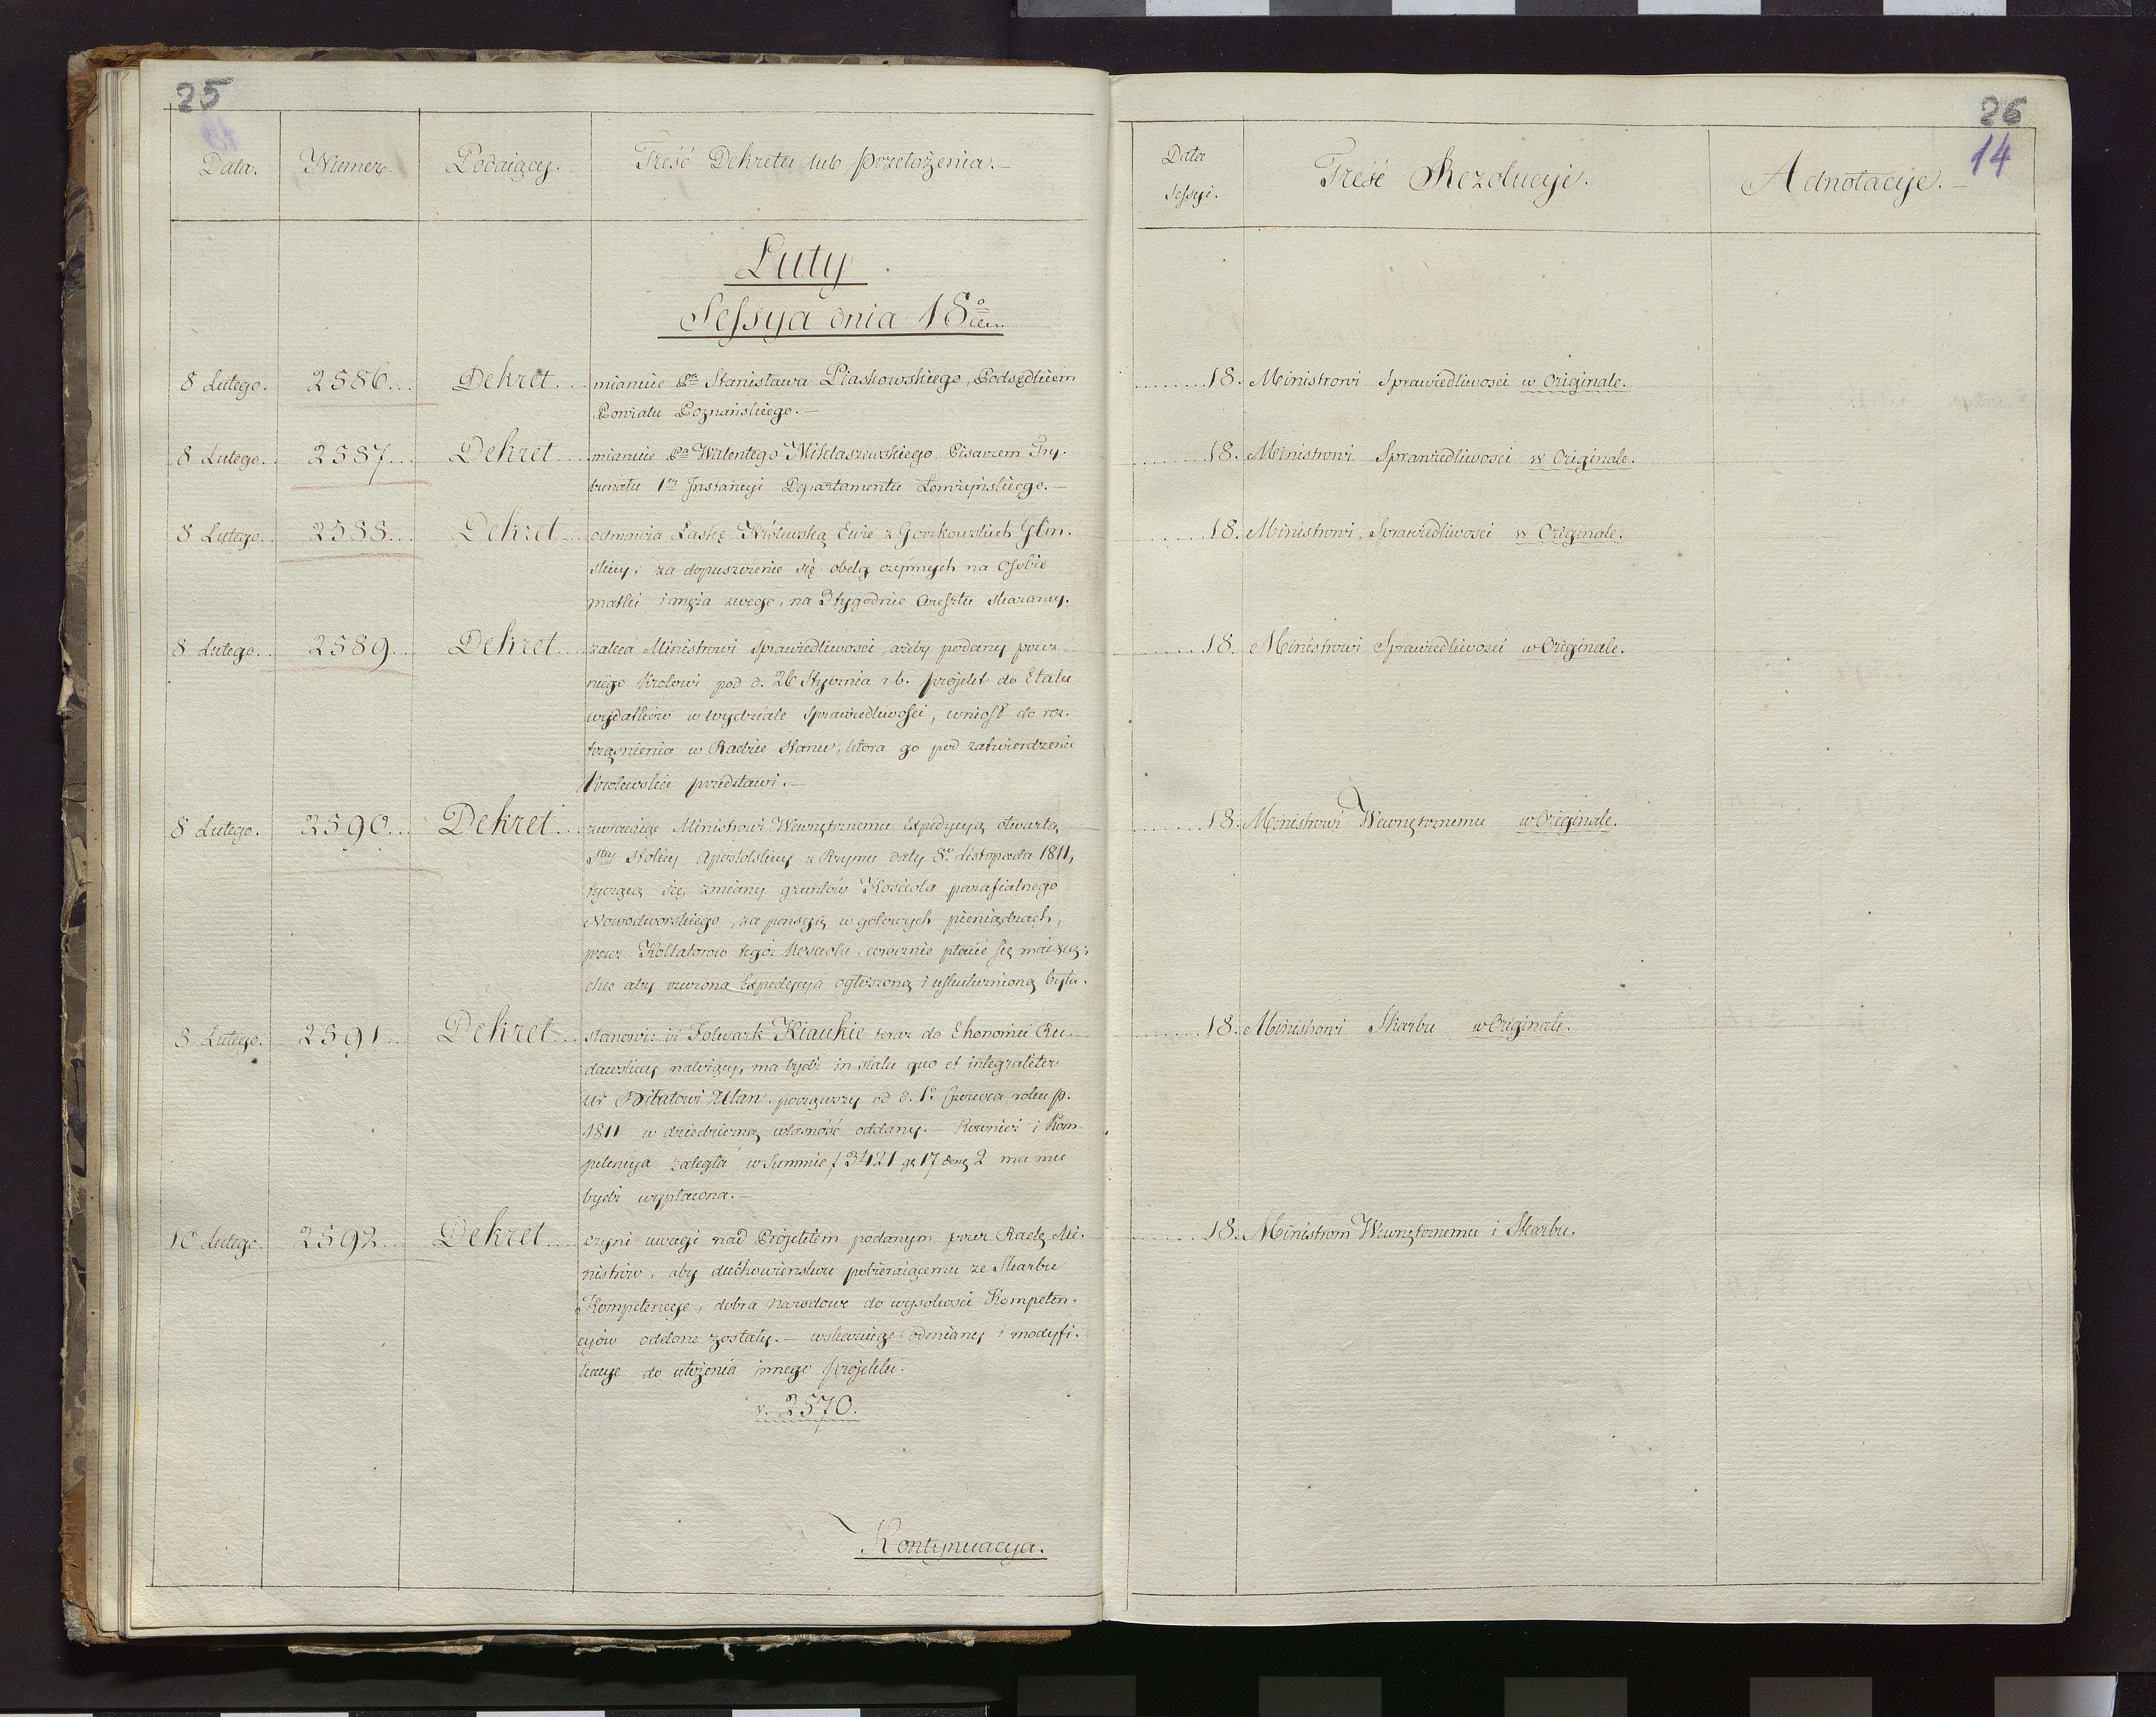 25
Data. Numer. Podaiący. Treść Dekretu lub przełożenia.—
Luty
Sessya dnia 18
8 Lutego. 2586... Dekret... mianuie Pna Stanisława Piaskowskiego, Podsędkiem
Powiatu Poznańskiego.—
8 Lutego. 2587... Dekret... mianuie Pna Walentego Miklaszewskiego Pisarzem Try-
bunału 1ey Instancyi Departamentu Łomżyńskiego.—
8 Lutego. 2588... Dekret... odmawia Łaskę Królewską Ewie z Gorzkowskich Glin-
skiey, za dopuszczenie się obelg czynnych na Osobie
matki i męża swego, na 3 tygodnie Aresztu skazaney.
8 Lutego. 2589... Dekret... zaleca Ministrowi Sprawiedliwosci, ażeby podany przez
niego Krolowi pod d. 26 Stycznia r. b. projekt do Etatu
wydatków w wydziale Sprawiedliwości, wniosł do roz-
trząśnienia w Radzie Stanu, ktora go pod zatwierdzenie
Krolewskie przedstawi.—
8 Lutego. 2590... Dekret... zwracaiąc Ministrowi Wewnętrznemu Expedycyą otwartą
Stey Stolicy Apostolskiey z Rzymu daty 8o Listopada 1811,
tyczącą się zmiany gruntów Kościoła parafialnego
Nowodworskiego, za pensyą w gotowych pieniądzach,
przez Kollatorow tegoż Kościoła, corocznie płacić się maiącą;
chce aby rzeczona Expedycya ogłoszoną i uskutecznioną była.
8 Lutego. 2591... Dekret... stanowi: iż Folwark Kiaukie teraz do Ekonomii
należący, ma bydź in statu quo et integraliter
Ułan. począwszy od d. 1o Czerwca roku p.
1811 w dziedziczną własność oddany.— Rownież i Kom-
petencya zaległa w Summie f 3421 gr 17 2 ma mu
bydź wypłacona.—
10 Lutego. 2592... Dekret... czyni uwagi nad Projektem podanym przez Radę Mi-
nistrów, aby duchowieństwu pobieraiącemu ze Skarbu
Kompetencye, dobra Narodowe do wysokości Kompeten-
cyów oddane zostały.— wskazuiąc odmiany i modyfi-
kacye do ułożenia innego projektu.
v. 2570.
Kontynuacya.
26
14
Data Sessyi. Treść Rezolucyi. Adnotacye.—
18. Ministrowi Sprawiedliwosci w Originale.
18. Ministrowi Sprawiedliwosci w Originale.
18. Ministrowi Sprawiedliwosci w Originale.
18. Ministrowi Sprawiedliwosci w Originale.
18. Ministrowi Wewnętrznemu w Originale.
18. Ministrowi Skarbu w Originale.
18. Ministrom Wewnętrznemu i Skarbu.